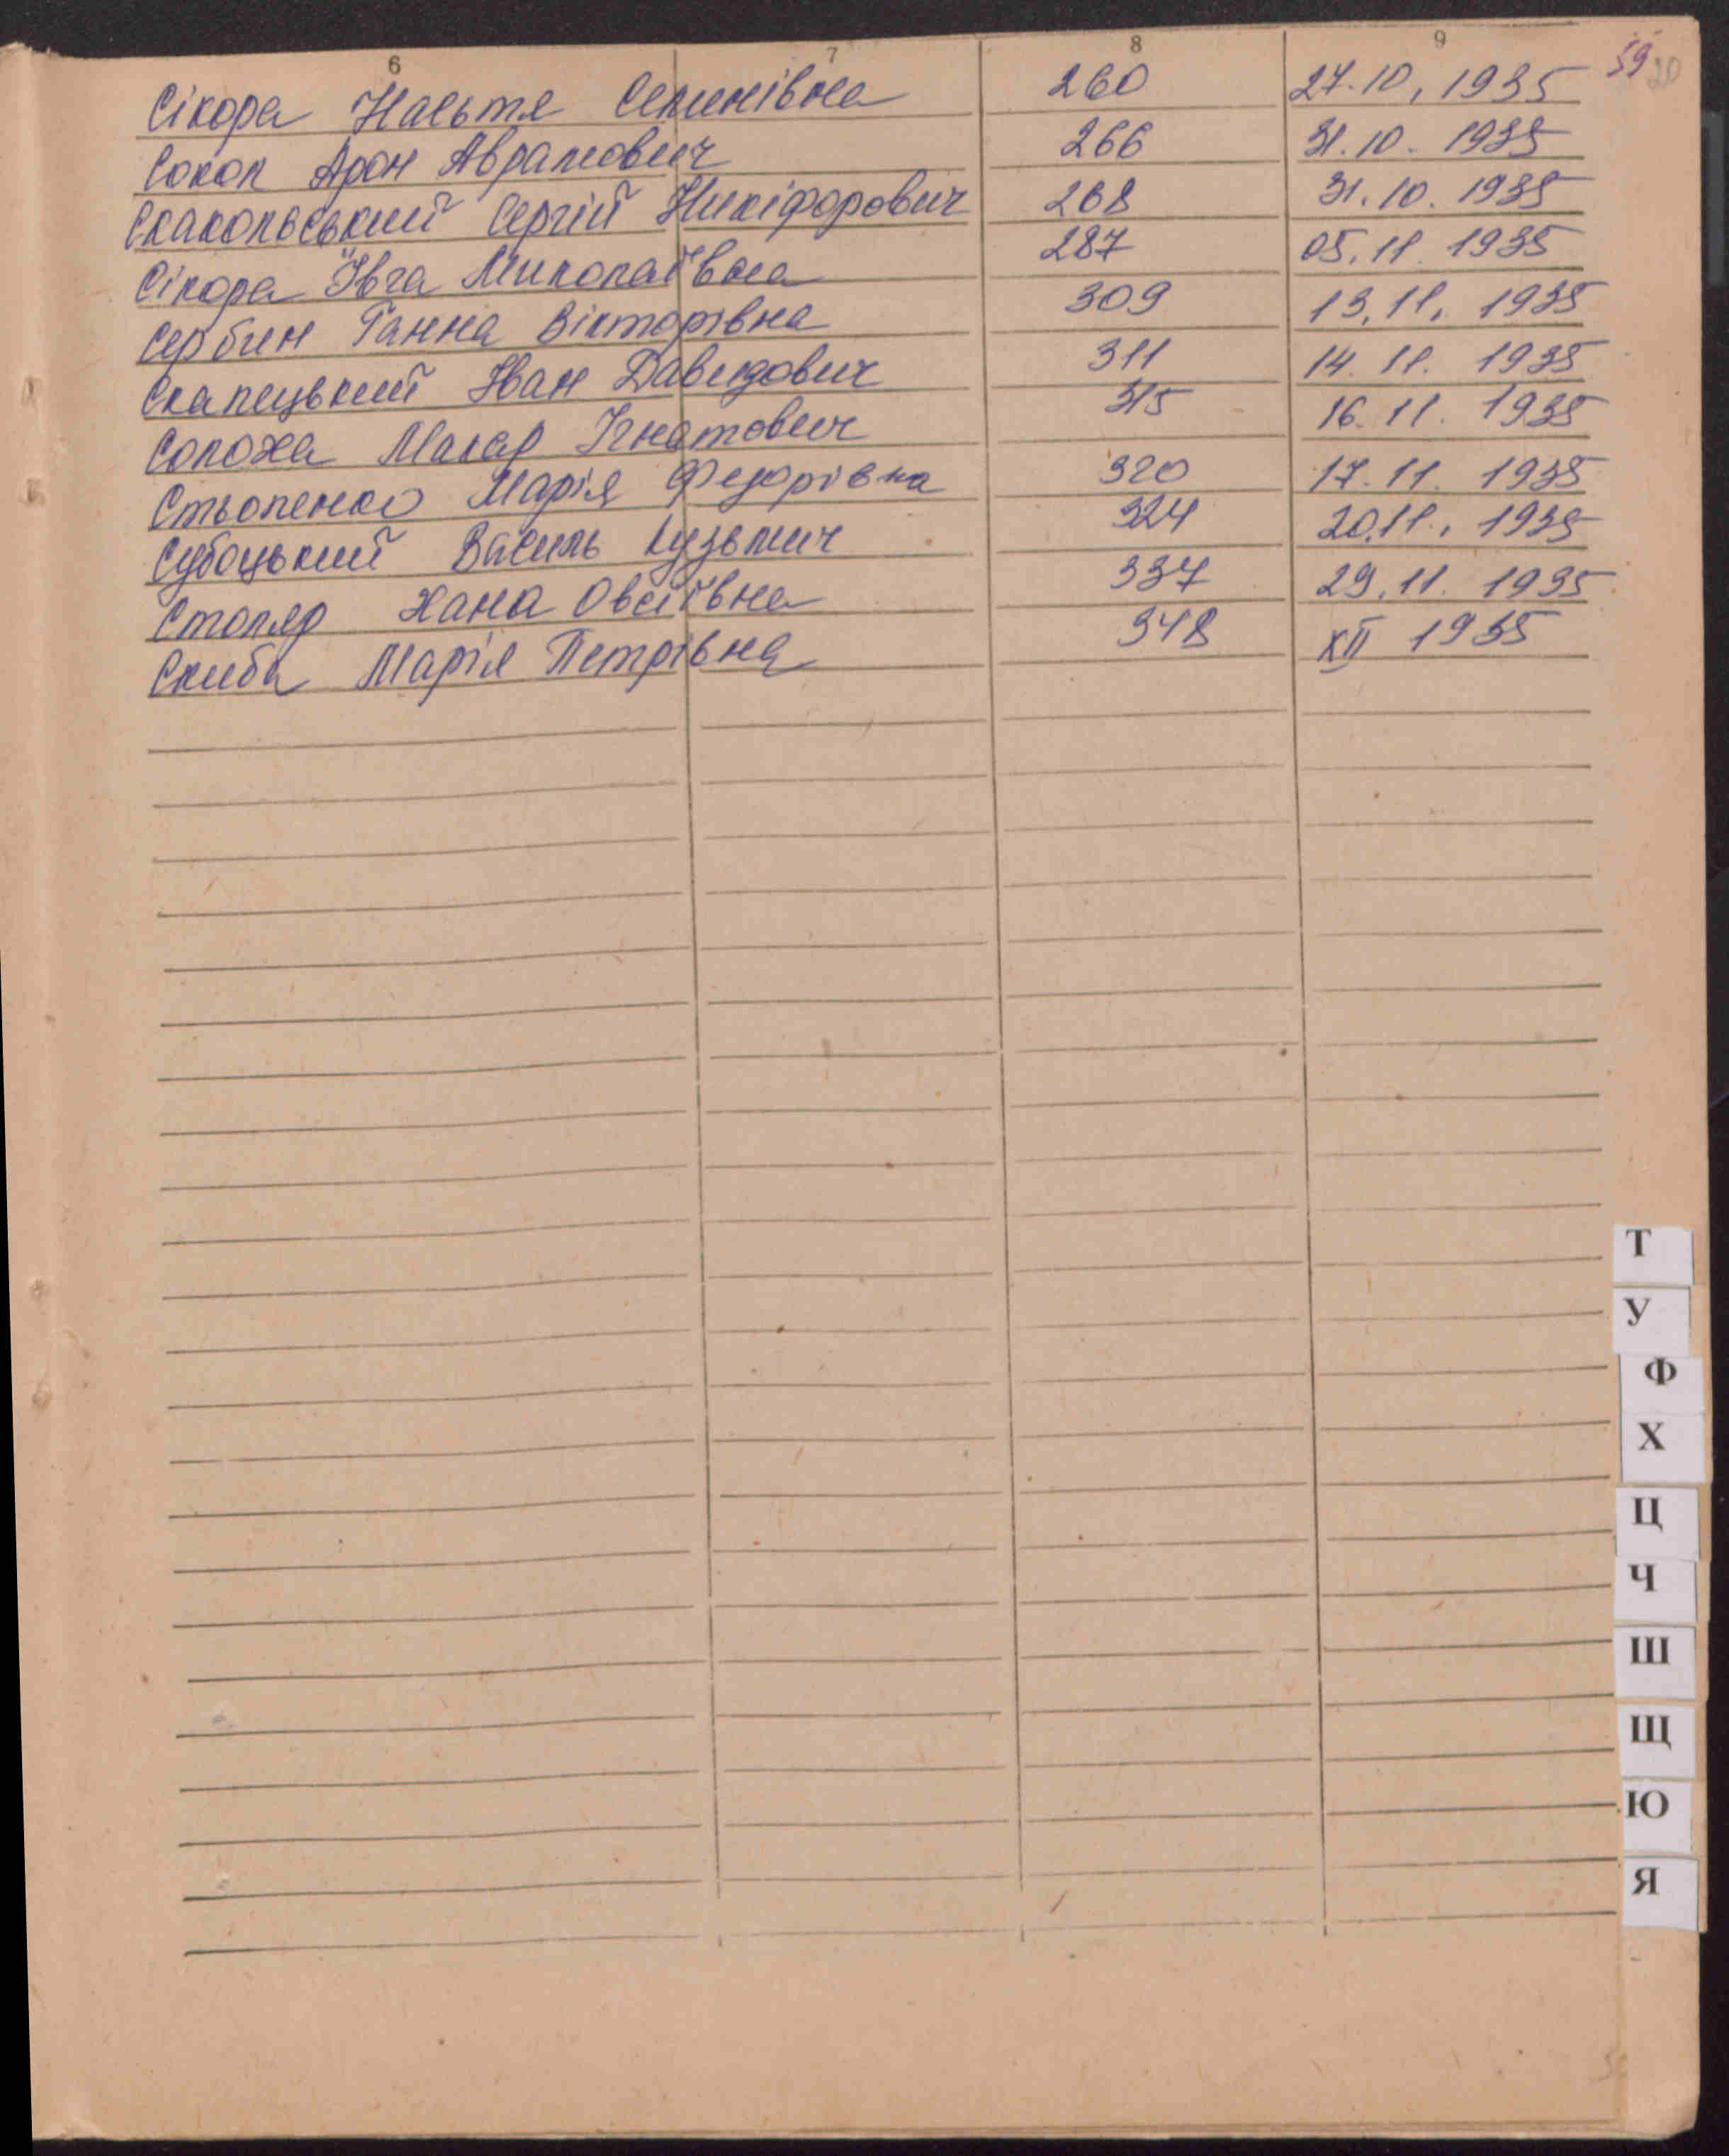 6 7 8 9 59 20
Сікора Настя Семенівна 260 27.10, 1935
Сокол Арон Аврамович 266 31.10. 1935
Скакольський Сергій Никіфорович 268 31.10. 1935
Сікора Ївга Миколаївна 287 05.11. 1935
Сербин Ганна Вікторівна 309 13.11. 1935
Скапецький Іван Давидович 311 14.11. 1935
Солоха Макар Ігнатович 315 16.11. 1935
Стьопенко Марія Федорівна 320 17.11. 1935
Субоцький Василь Кузьмич 324 20.11. 1935
Столяр Хана Овсіївна 337 29.11. 1935
Скиба Марія Петрівна 348 XII 1935
Т
У
Ф
Х
Ц
Ч
Ш
Щ
Ю
Я